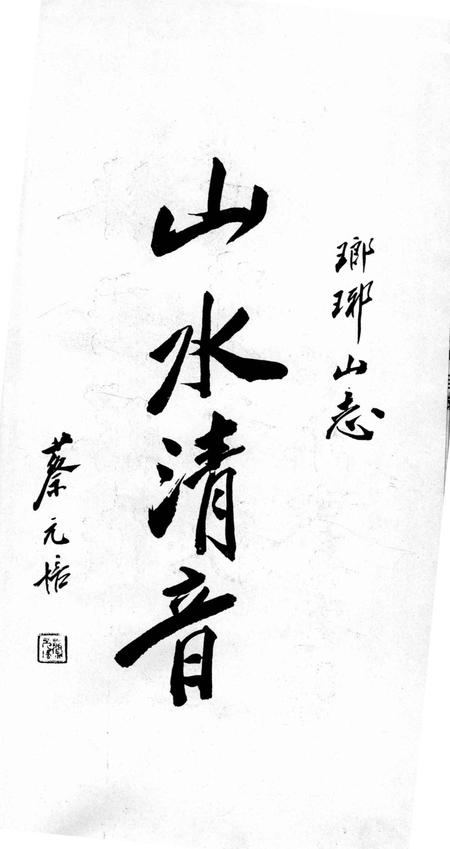 瑯琊山志
山水清音
蔡元培